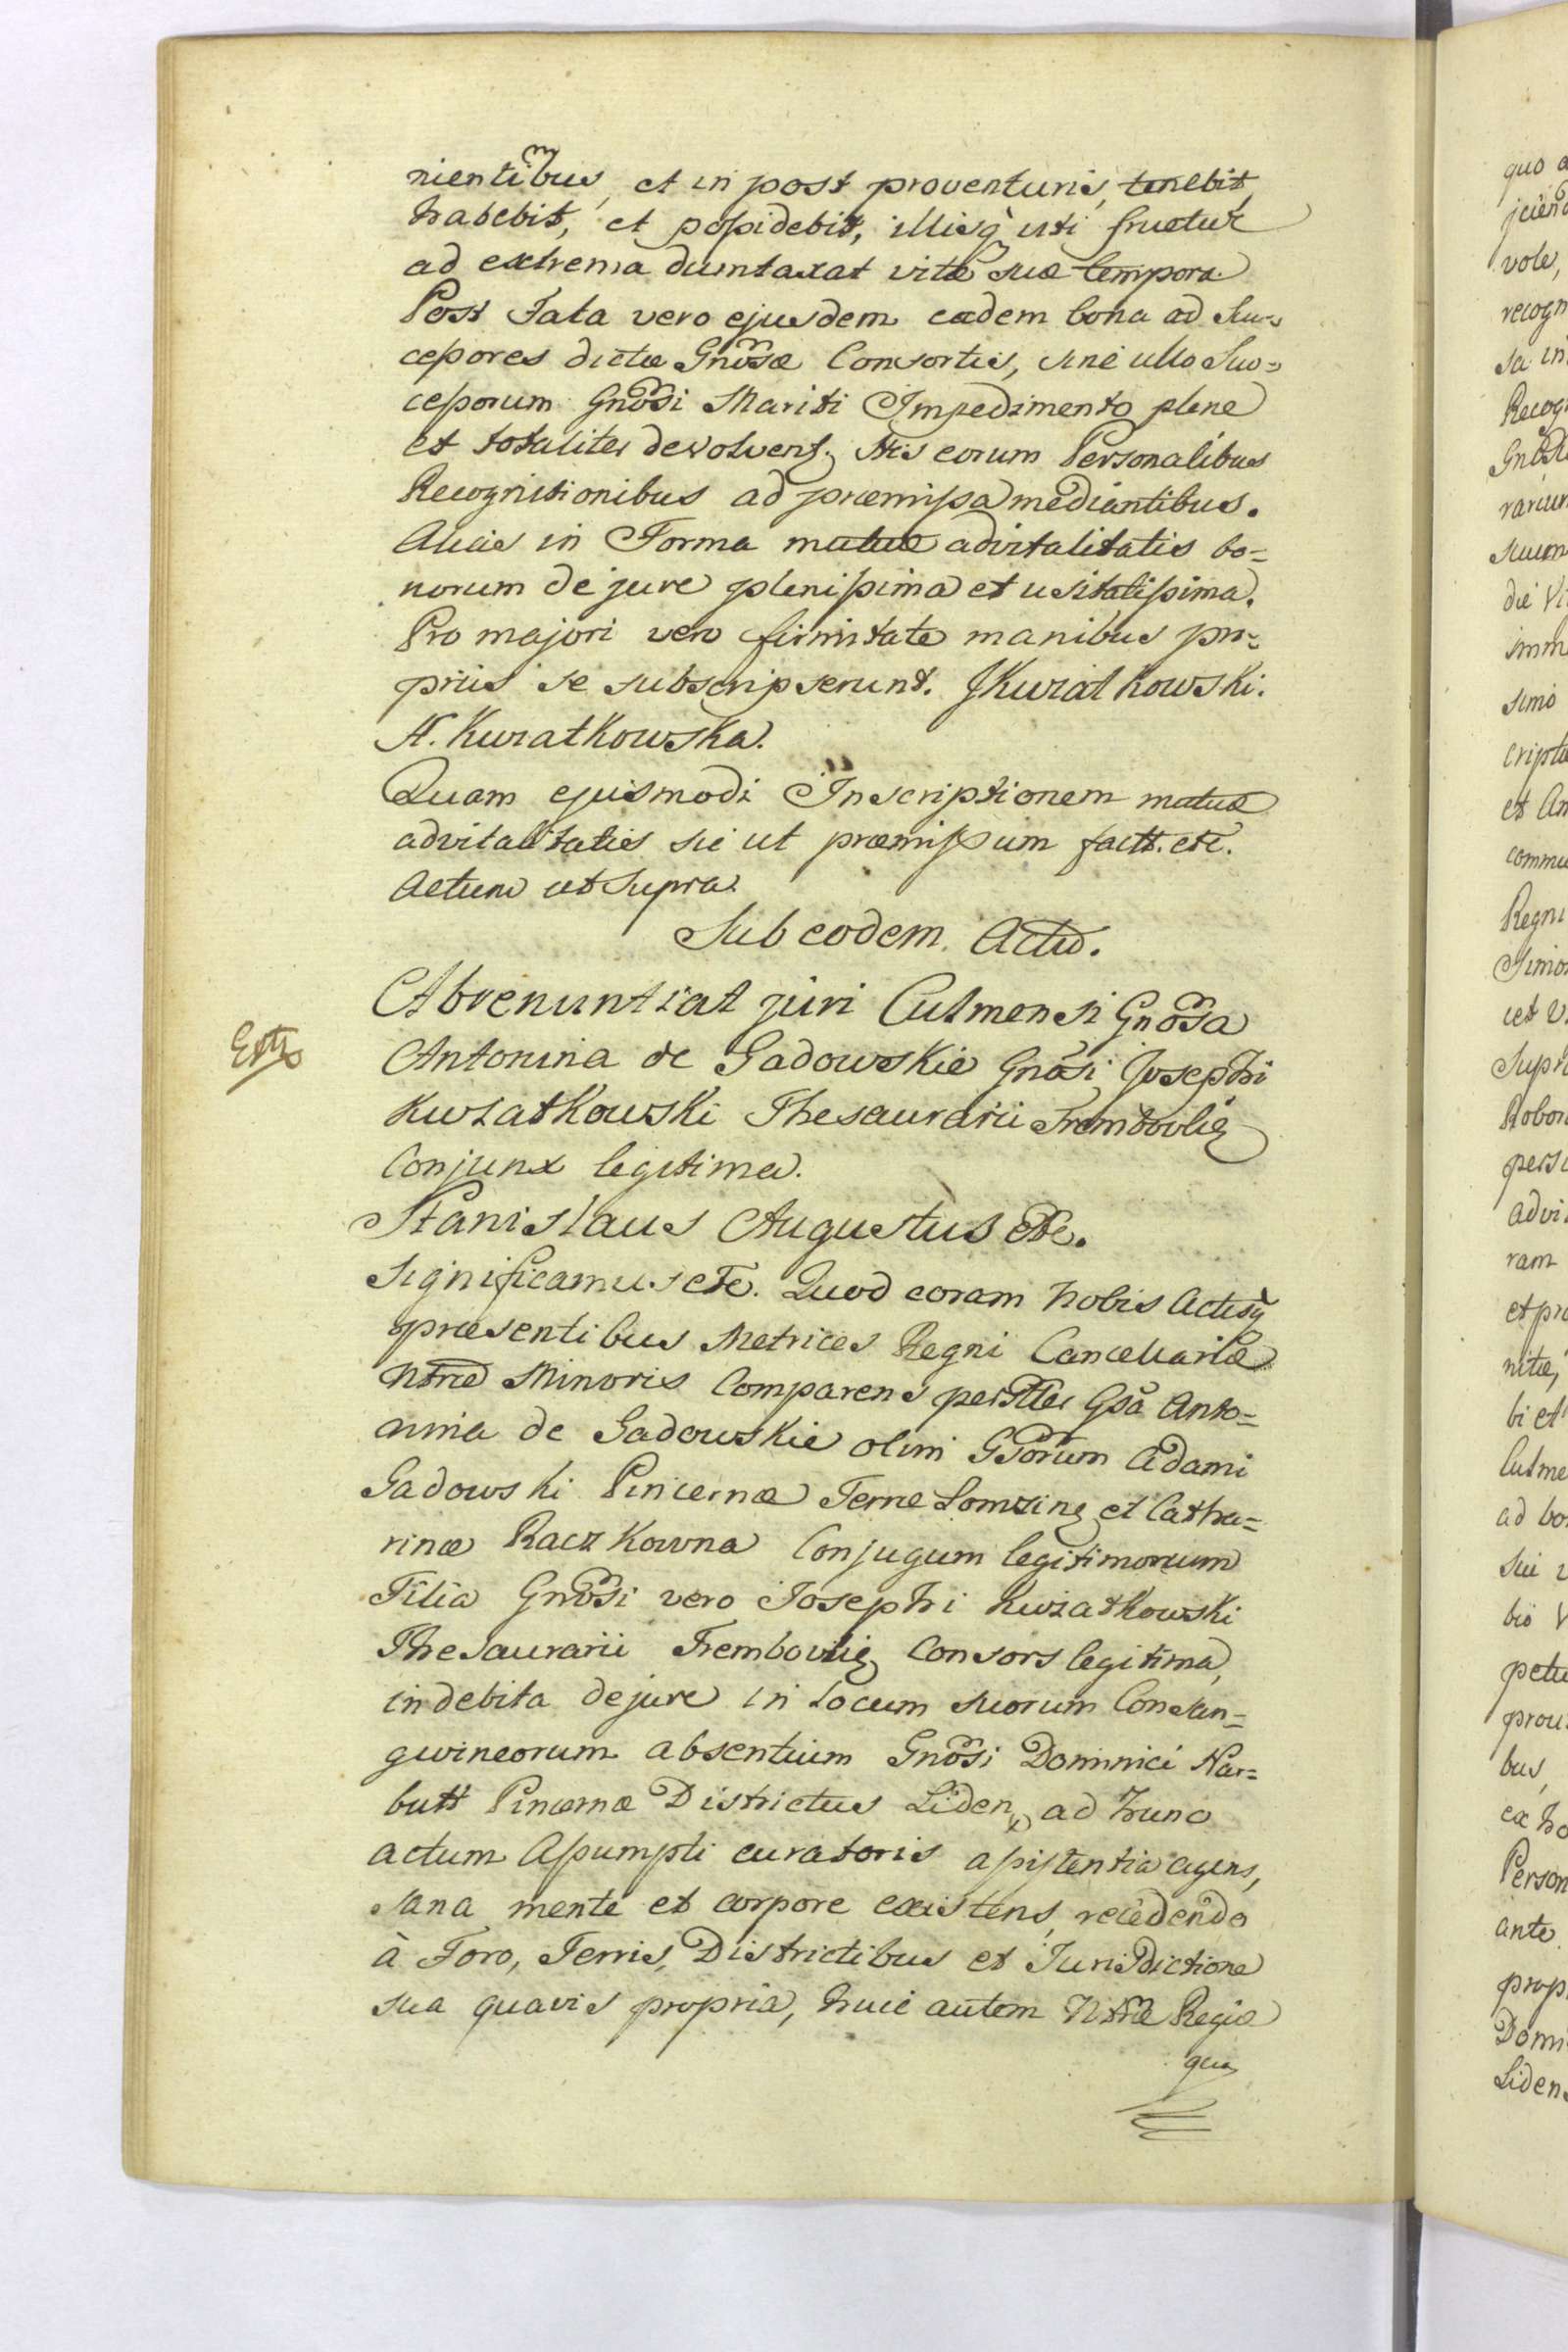 nientibus, et in post proventuris, tenebit
habebit, et possidebit, illisq̀ uti fruetur
ad extrema dumtaxat vitæ suæ tempora.
Post Fata vero ejusdem eadem bona ad Suc=
cessores dictæ Gnosæ Consortis, sine ullo Suc=
cessorum Gnosi Mariti Impedimento plene
et totaliter devolvent. His eorum Personalibus
Recognitionibus ad præmissa mediantibus.
Aliàs in Forma mutuæ advitalitatis bo=
norum de jure plenissima et usitatissima.
Pro majori vero firmitate manibus pro=
priis se subscripserunt. JKwiatkowski.
A. Kwiatkowska.
Quam ejusmodi Inscriptionem mutuæ
advitalitatis sic ut præmissum factt. etc.
Actum ut supra.
Sub eodem Actu.
Abrenuntiat juri Culmensi Gnosa
Extr
Antonina de Gadowskie Gnosi Josephi
Kwiatkowski Thesaurarii Tremboulien
Conjunx legitima.
Stanislaus Augustus etc.
Significamus etc. Quod coram Nobis Actisq̀
præsentibus Metrices Regni Cancellariæ
Ntræ Minoris Comparens persllter Gsa Anto=
nina de Gadowskie olim Gsorum Adami
Gadowski Pincernæ Terræ Lomzing et Catha=
rinæ Raczkowna Conjugum legitimorum
Filia Gnosi vero Josephi Kwiatkowski
Thesaurarii Trembovlien Consors legitima,
in debita de jure in locum suorum Consan=
gwineorum absentium Gnosi Dominici Nar=
butt Pincernæ Districtus Liden, ad hunc
actum Assumpti curatoris assistentia agens,
sana mente et corpore existens, recedendo
à Foro, Terris, Districtibus et Jurisdictione
sua quavis propria, huic autem Ntræ Regiæ
qua